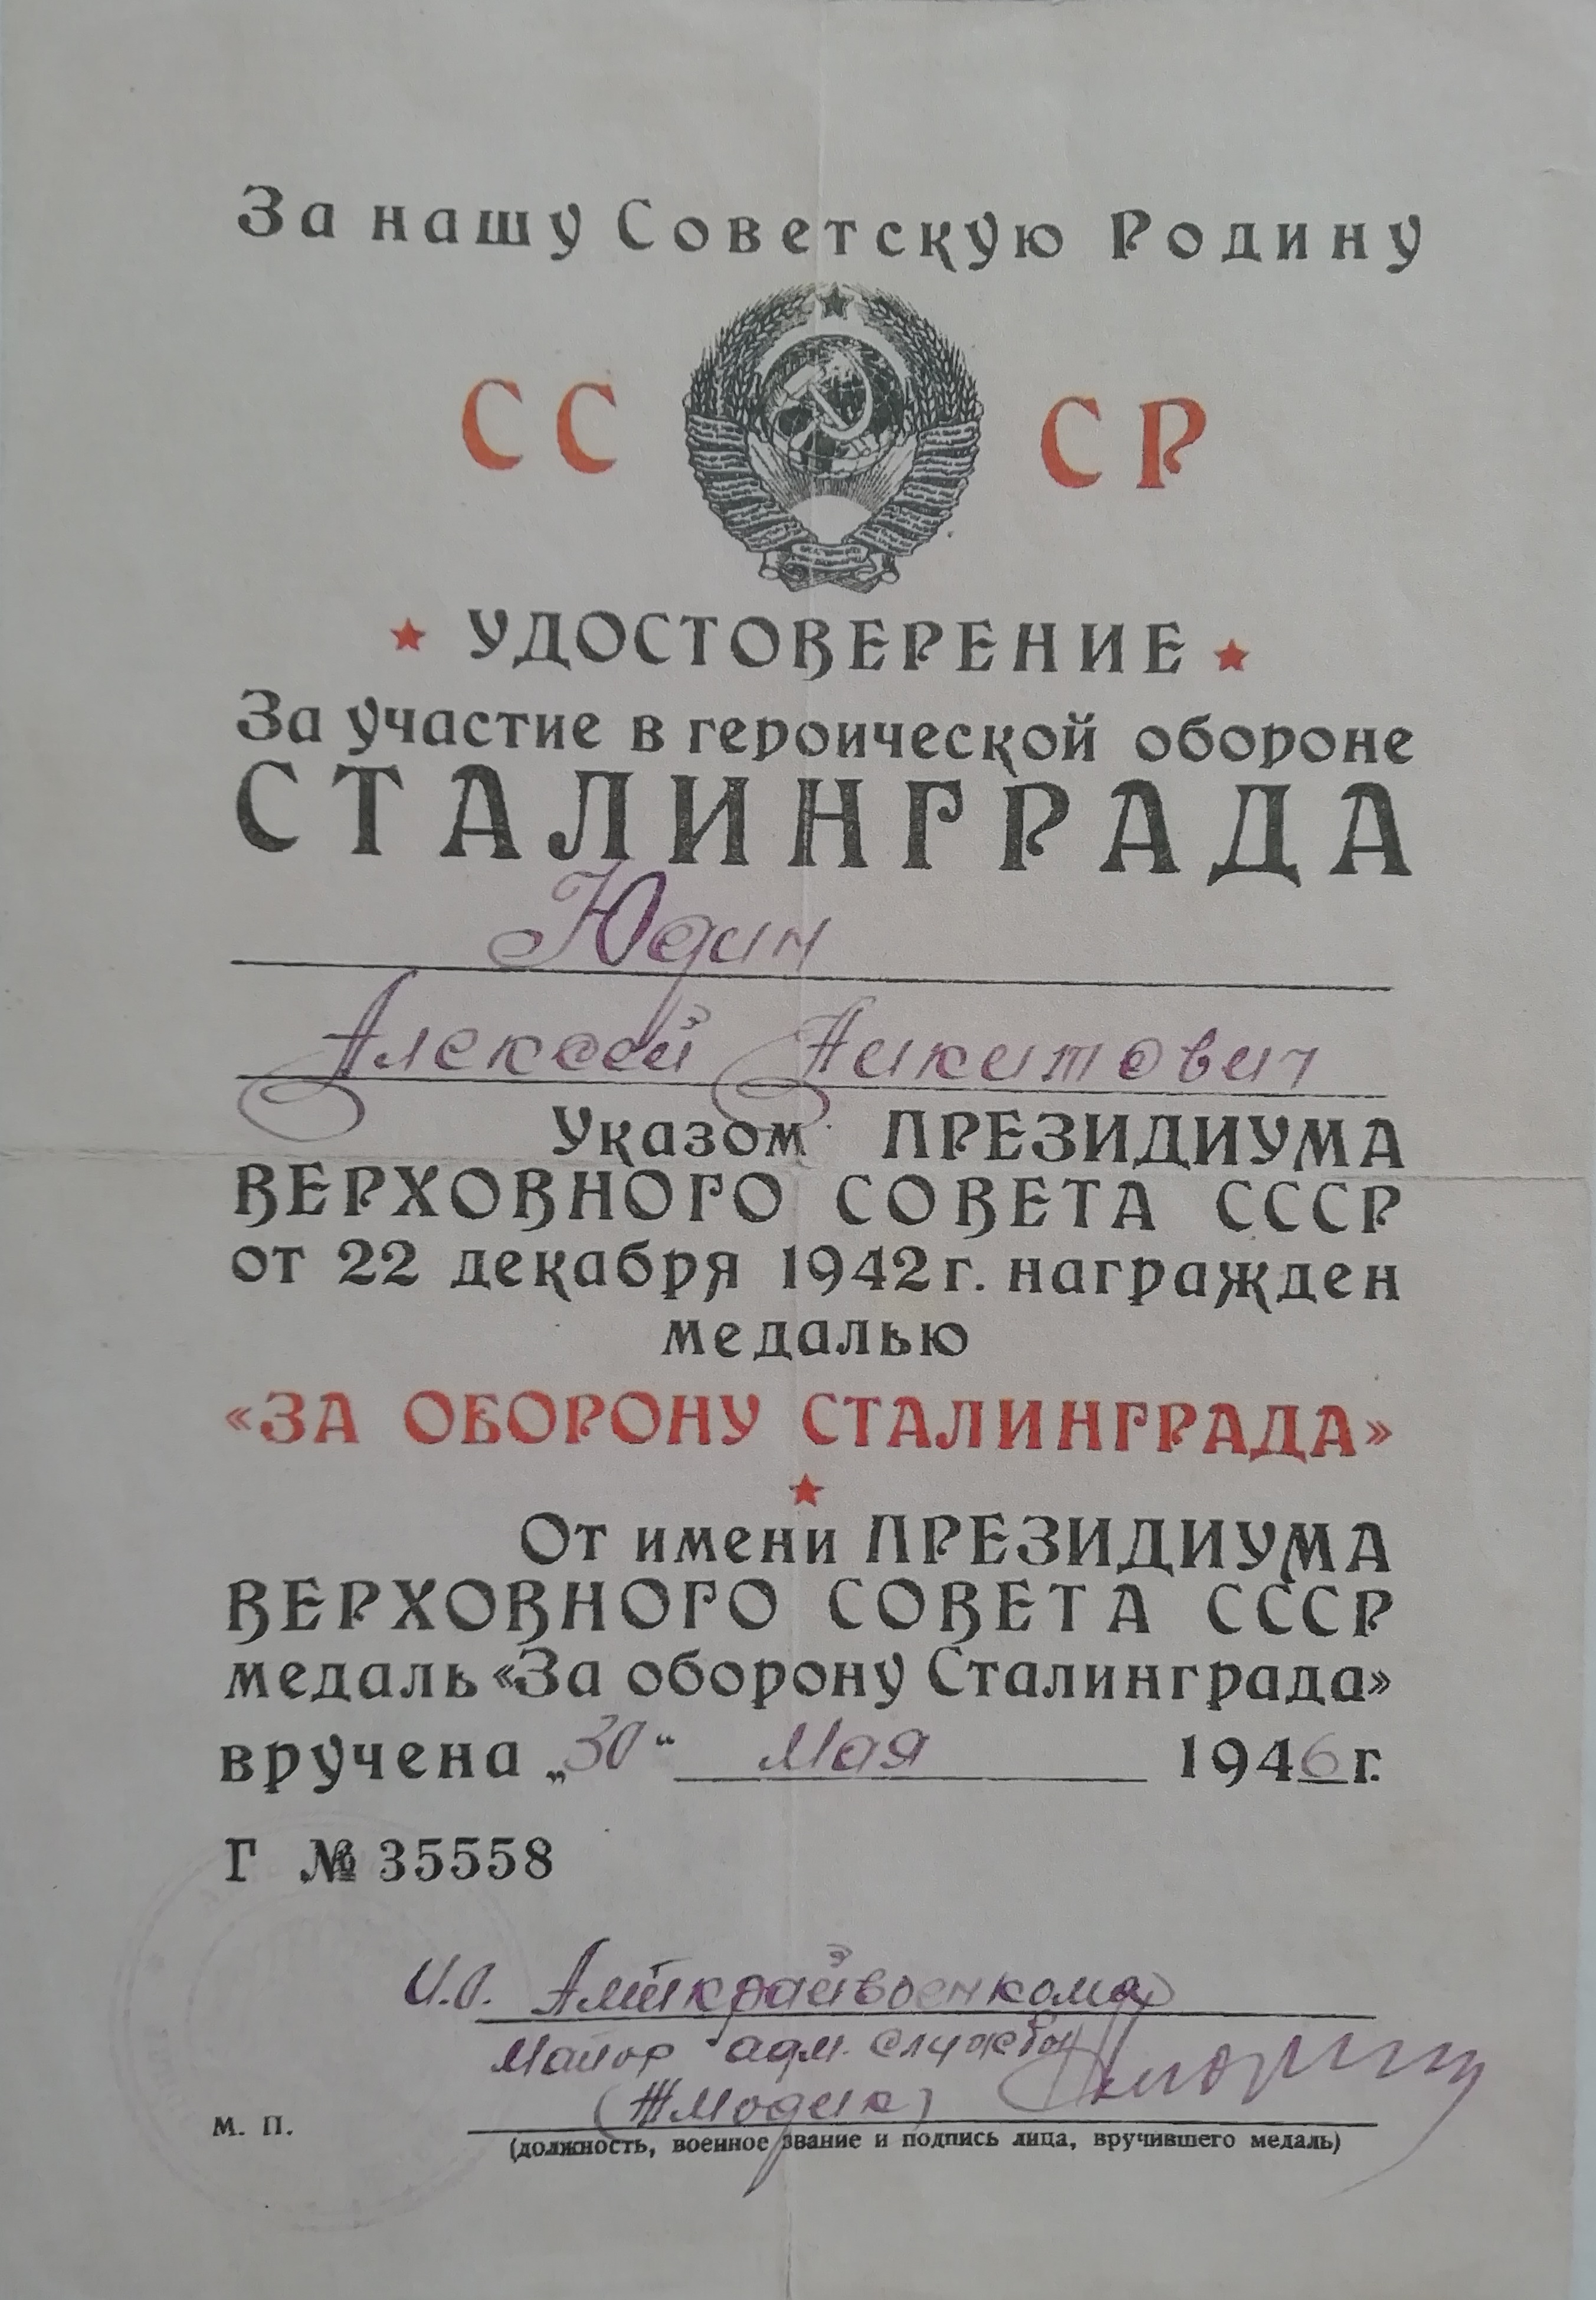 За нашу Советскую Родину
СС СР
УДОСТОВЕРЕНИЕ
За участие в героической обороне
СТАЛИНГРАДА
Юдин
Алексей Никитович
Указом ПРЕЗИДИУМА
ВЕРХОВНОГО СОВЕТА СССР
от 22 декабря 1942 г. награжден
медалью
«ЗА ОБОРОНУ СТАЛИНГРАДА»
От имени ПРЕЗИДИУМА
ВЕРХОВНОГО СОВЕТА СССР
медаль «За оборону Сталинграда»
вручена „30“ Мая 1946 г.
Г № 35558
И.О. АлтКрайвоенкома
Майор адм. службы
М. П.
(должность, военное звание и подпись лица, вручившего медаль)